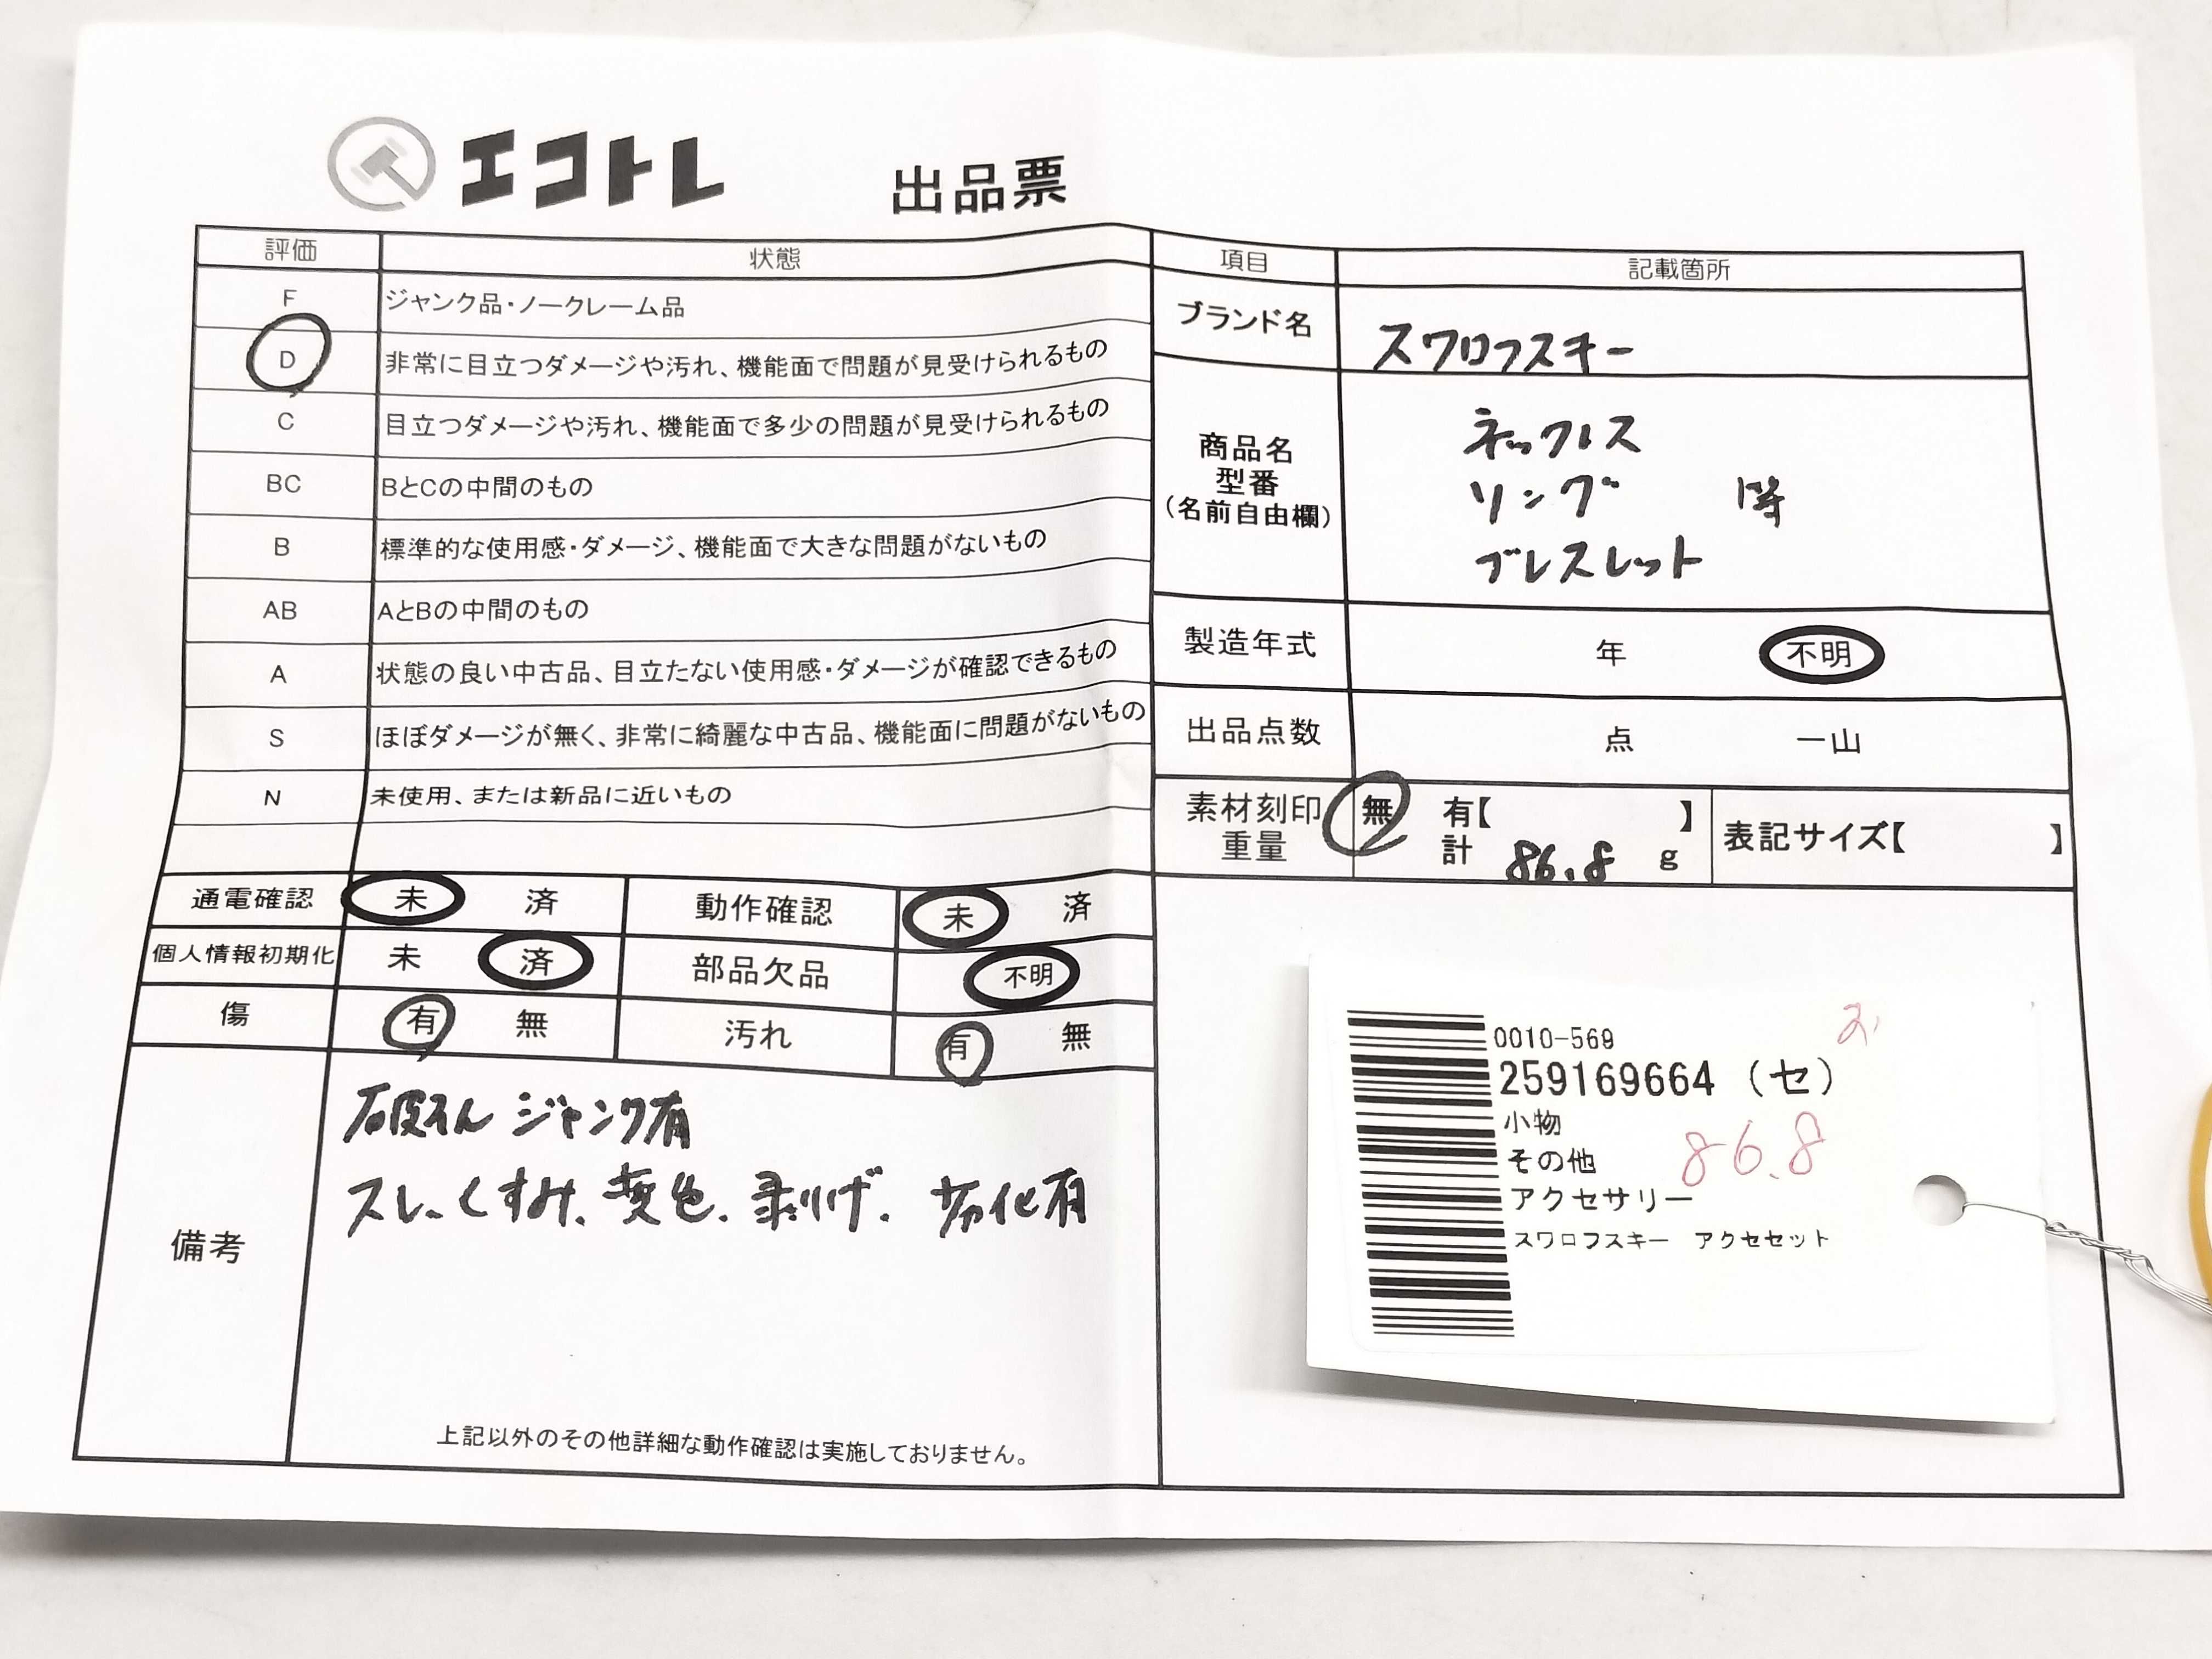 エコトレ 出品票
評価 状態
F ジャンク品・ノークレーム品
D 非常に目立つダメージや汚れ、機能面で問題が見受けられるもの
C 目立つダメージや汚れ、機能面で多少の問題が見受けられるもの
BC BとCの中間のもの
B 標準的な使用感・ダメージ、機能面で大きな問題がないもの
AB AとBの中間のもの
A 状態の良い中古品、目立たない使用感・ダメージが確認できるもの
S ほぼダメージが無く、非常に綺麗な中古品、機能面に問題がないもの
N 未使用、または新品に近いもの
通電確認 未 済 動作確認 未 済
個人情報初期化 未 済 部品欠品 不明
傷 有 無 汚れ 有 無
備考
破そん ジャンク有
スレ、くすみ、変色、剥げ、劣化有
上記以外のその他詳細な動作確認は実施しておりません。
項目 記載箇所
ブランド名 スワロフスキー
商品名
型番
(名前自由欄)
ネックレス
リング 等
ブレスレット
製造年式 年 不明
出品点数 点 一山
素材刻印 無 有【 】 表記サイズ【 】
重量 計 86.8 g
0010-569
259169664 (セ)
小物
その他 86.8
アクセサリー
スワロフスキー アクセセット